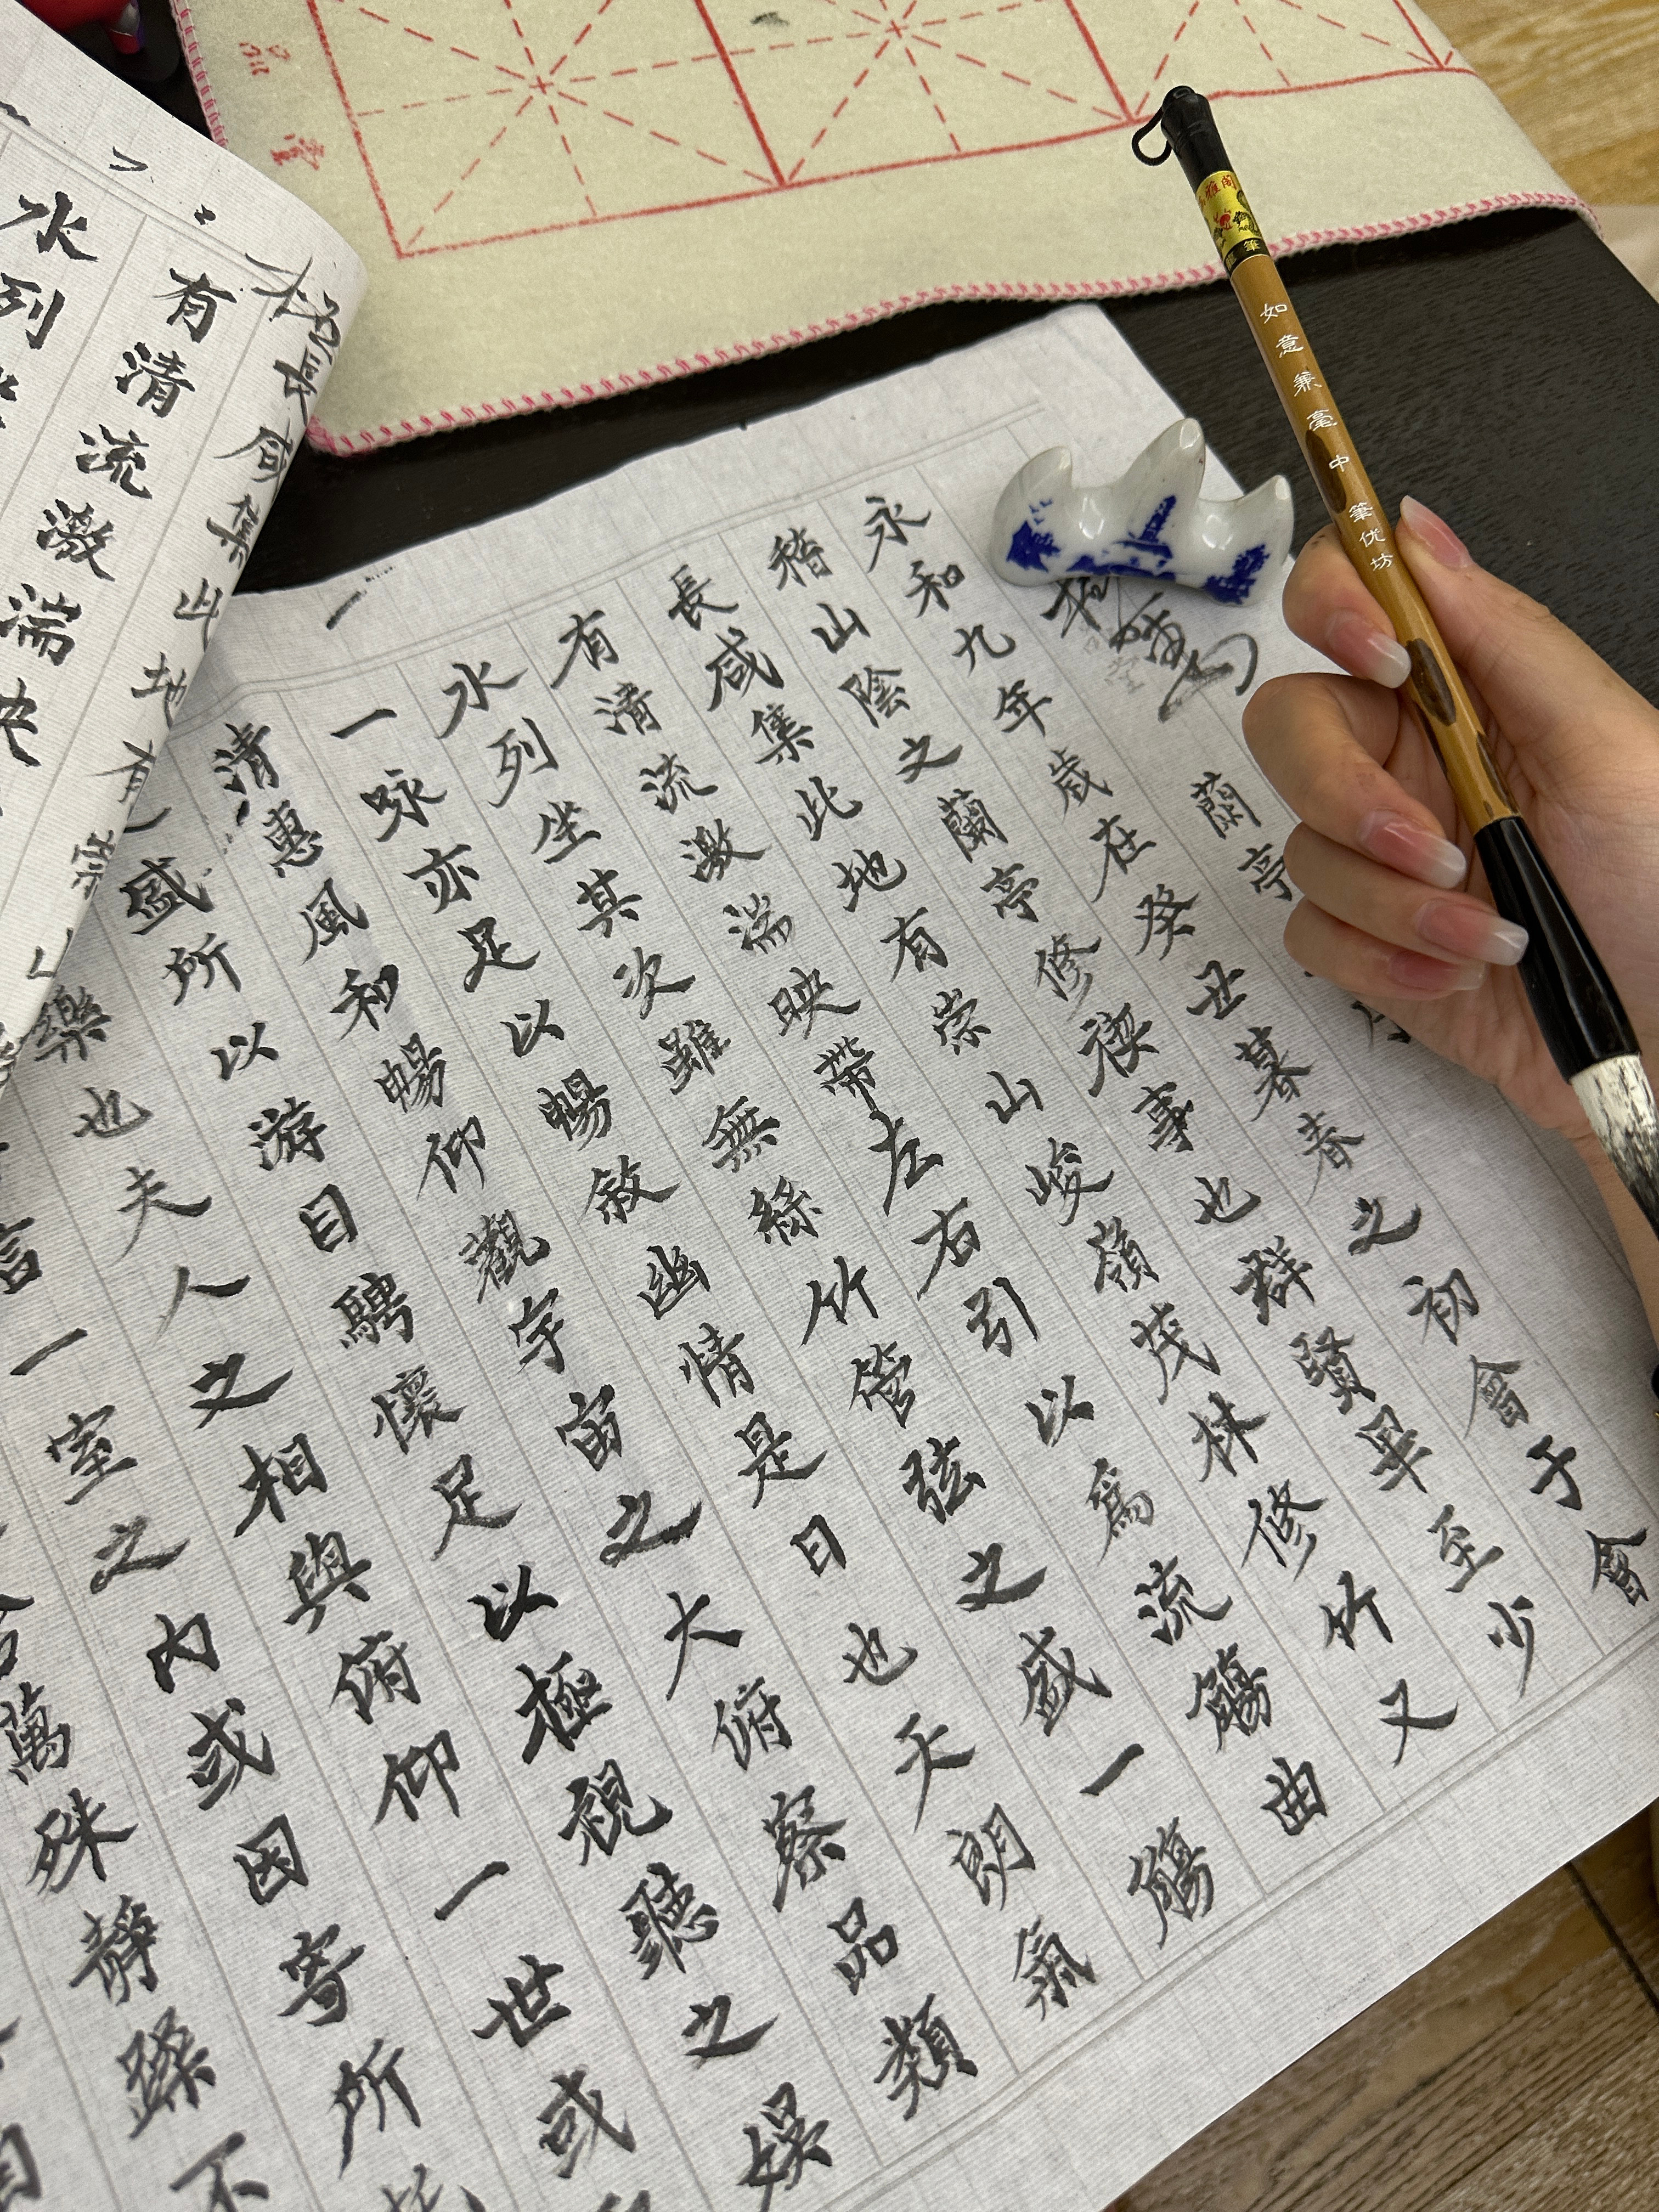 蘭亭
永和九年歲在癸丑暮春之初會于會
稽山陰之蘭亭修禊事也群賢畢至少
長咸集此地有崇山峻嶺茂林修竹又
有清流激湍映帶左右引以爲流觴曲
水列坐其次雖無絲竹管弦之盛一觴
一咏亦足以暢敘幽情是日也天朗氣
清惠風和暢仰觀宇宙之大俯察品類
盛所以游目騁懷足以極視聽之娛
樂也夫人之相與俯仰一世或
言一室之內或因寄所
萬殊靜躁不
長咸集此地有
有清流激湍
水列
如意兼毫中筆优坊